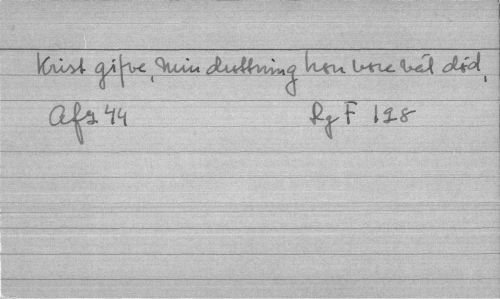 Krist gifve, min drottning hon vore väl död,
Afz 44 Rg F 128